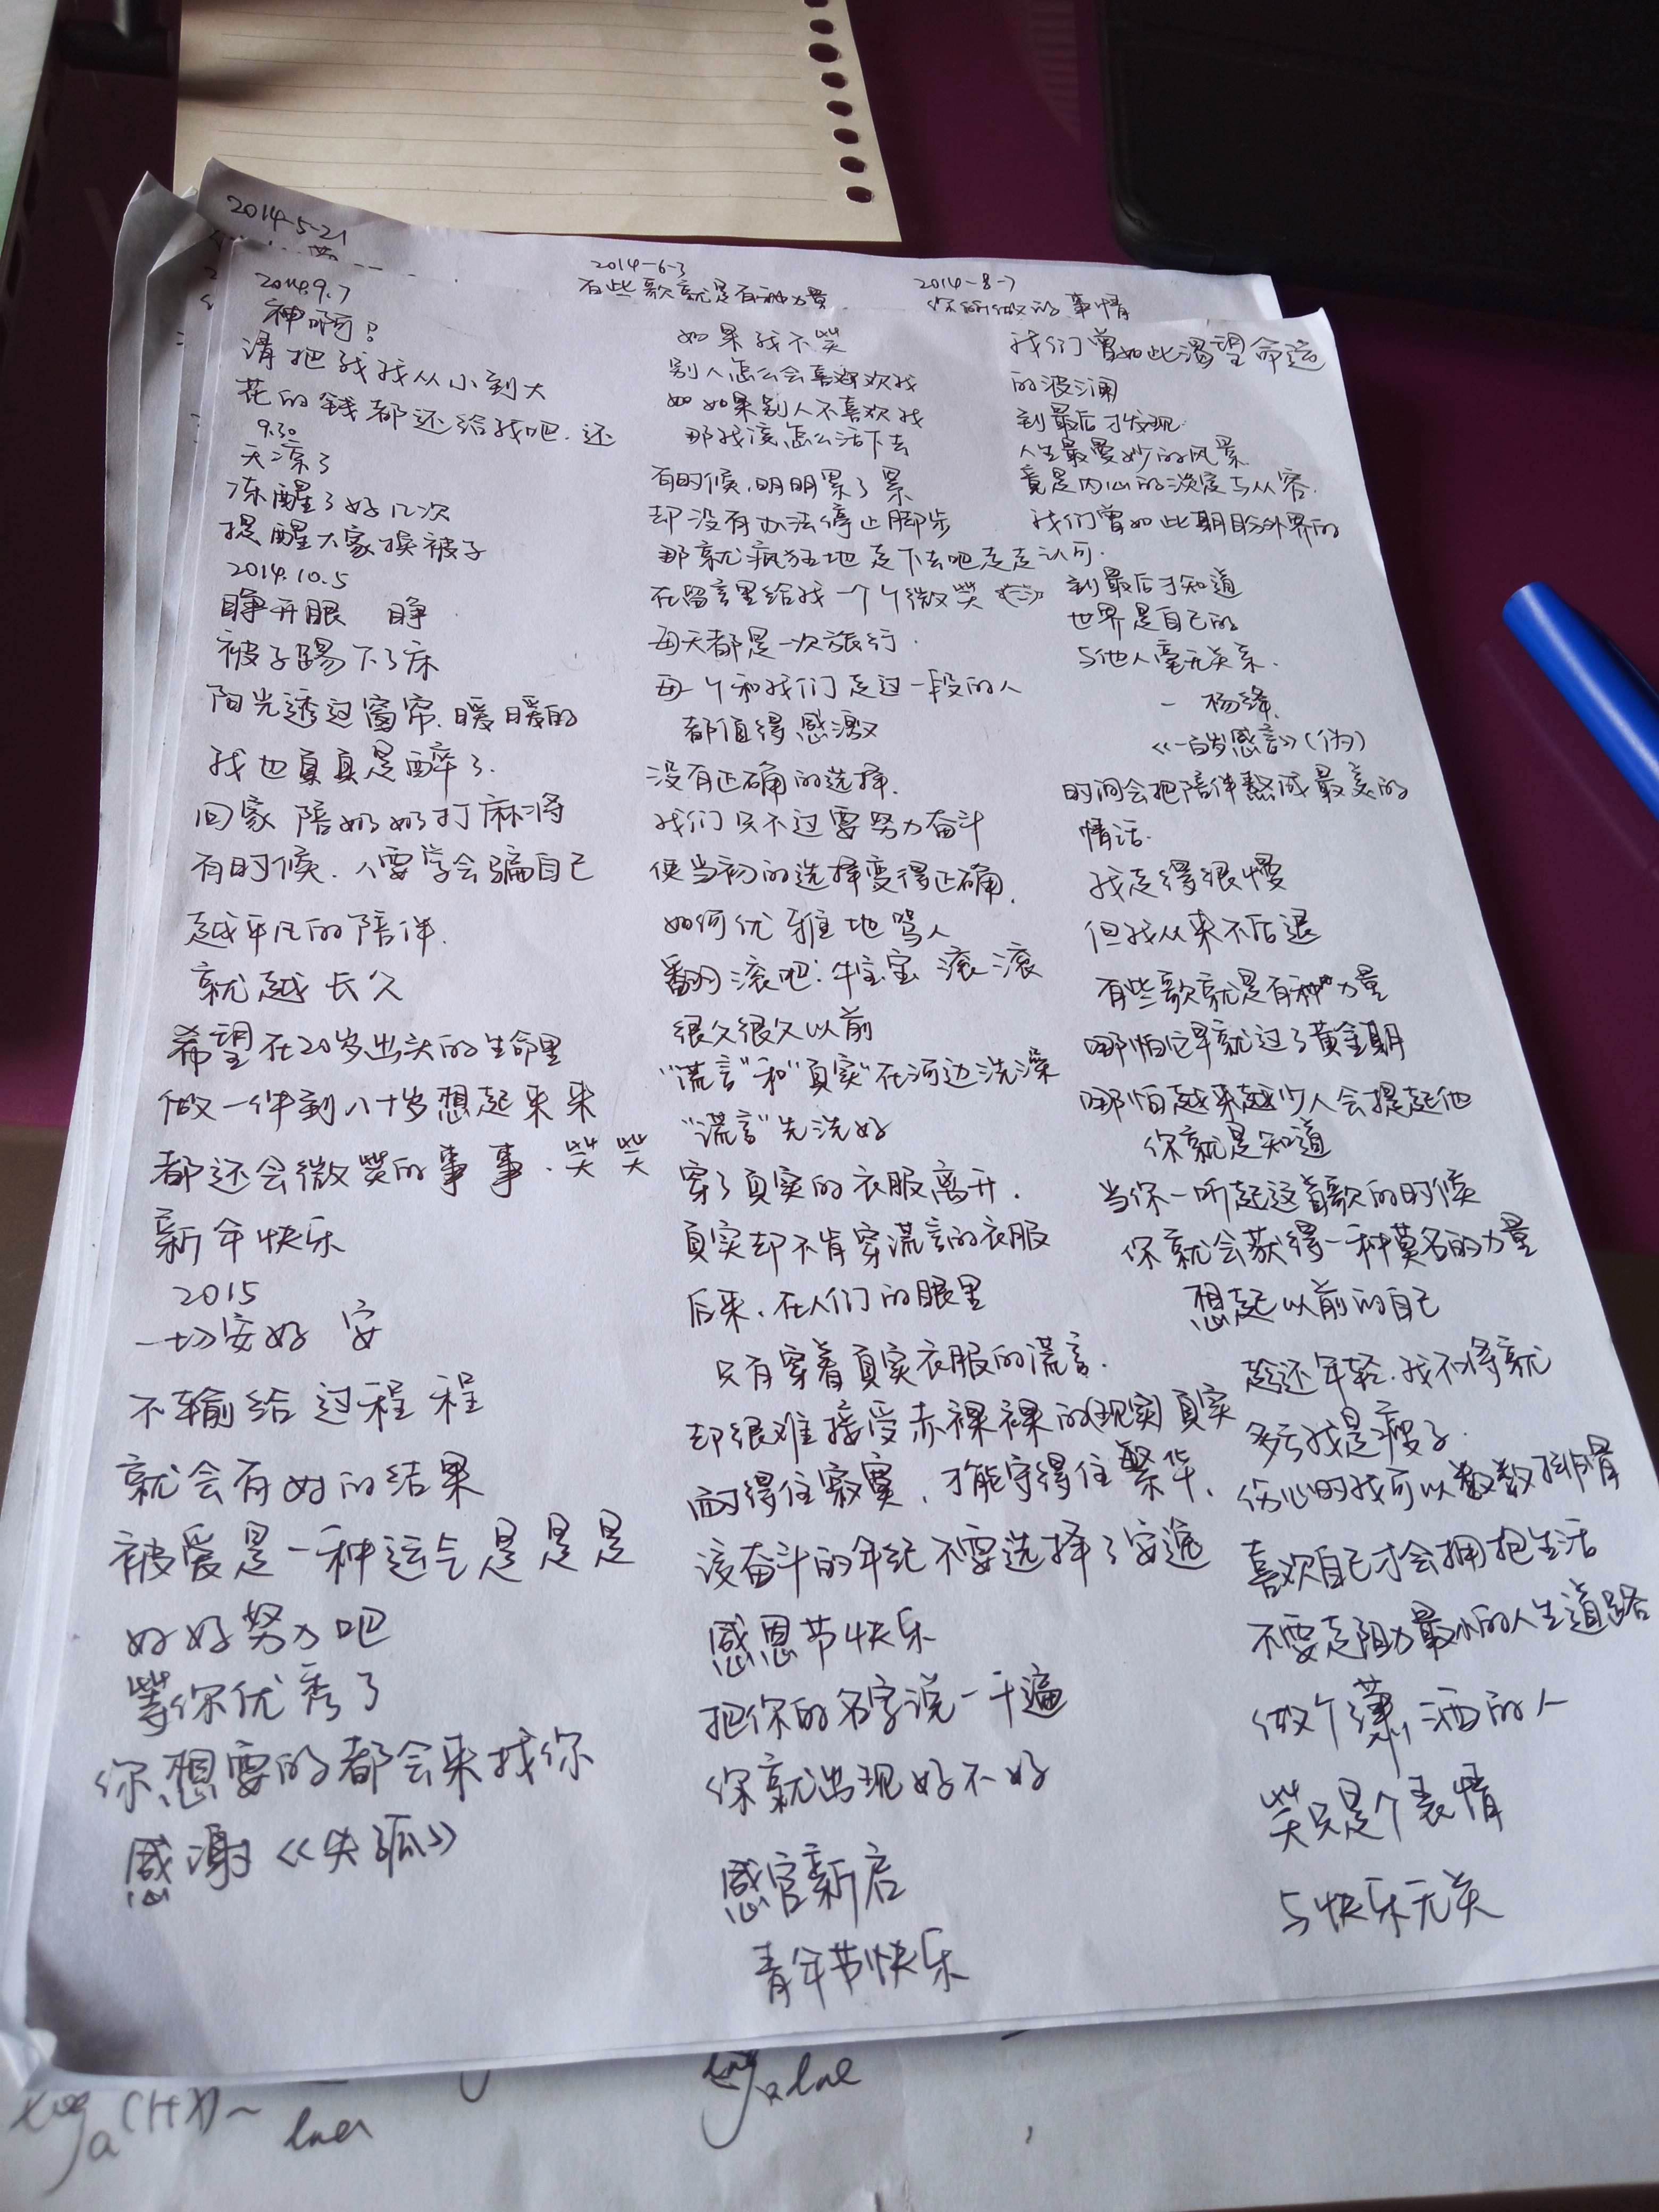 2014-5-21
2014-6-3
有些歌就是有种力量
2014-8-7
你所做的事情
2014.9.7
神啊?
请把我我从小到大
花的钱都还给我吧.还
9.30
天凉了
冻醒了好几次
提醒大家换被子
2014.10.5
睁开眼 睁
被子踢下了床
阳光透过窗帘.暖暖的
我也真真是醉了.
回家 陪奶奶打麻将
有时候.人要学会骗自己
越平凡的陪伴.
就越长久
希望在20岁出头的生命里
做一件到八十岁想起来来
都还会微笑的事事.笑笑
新年快乐
2015
一切安好 安
不输给过程 程
就会有好的结果
被爱是一种运气是是是
好好努力吧
等你优秀了
你想要的都会来找你
感谢《失孤》
如果我不笑
别人怎么会喜欢欢我
如如果别人不喜欢我
那我该怎么活下去
有时候.明明累了累
却没有办法停止脚步
那就疯狂地走下去吧走走认可.
在留言里给我一个个微笑
每天都是一次旅行.
每个和我们走过一段的人
都值得感激
没有正确的选择.
我们只不过要努力奋斗
使当初的选择变得正确.
如何优雅地骂人
翻滚吧:牛宝宝 滚滚
很久很久以前
“谎言”和“真实”在河边洗澡
“谎言”先洗好
穿了真实的衣服离开.
真实却不肯穿谎言的衣服
后来.在人们的眼里
只有穿着真实衣服的谎言.
却很难接受赤裸裸的现实真实
耐得住寂寞.才能守得住繁华.
该奋斗的年纪不要选择了安逸
感恩节快乐
把你的名字说一千遍
你就出现好不好
感官新启
青年节快乐
我们曾如此渴望命运
的波澜
到最后才发现
人生最曼妙的风景
竟是内心的淡定与从容.
我们曾如此期盼外界的
到最后才知道
世界是自己的
与他人毫无关系.
一 杨绛
《一百岁感言》(伪)
时间会把陪伴熬成最美的
情话.
我走得很慢
但我从来不后退
有些歌就是有种力量
哪怕它早就过了黄金期
哪怕越来越少人会提起他
你就是知道
当你一听起这首歌的时候
你就会获得一种莫名的力量
想起以前的自己
趁还年轻.我不将就
多亏我是瘦子.
伤心时我可以数数排骨
喜欢自己才会拥抱生活
不要走阻力最小的人生道路
做个潇洒的人
笑只是个表情
与快乐无关